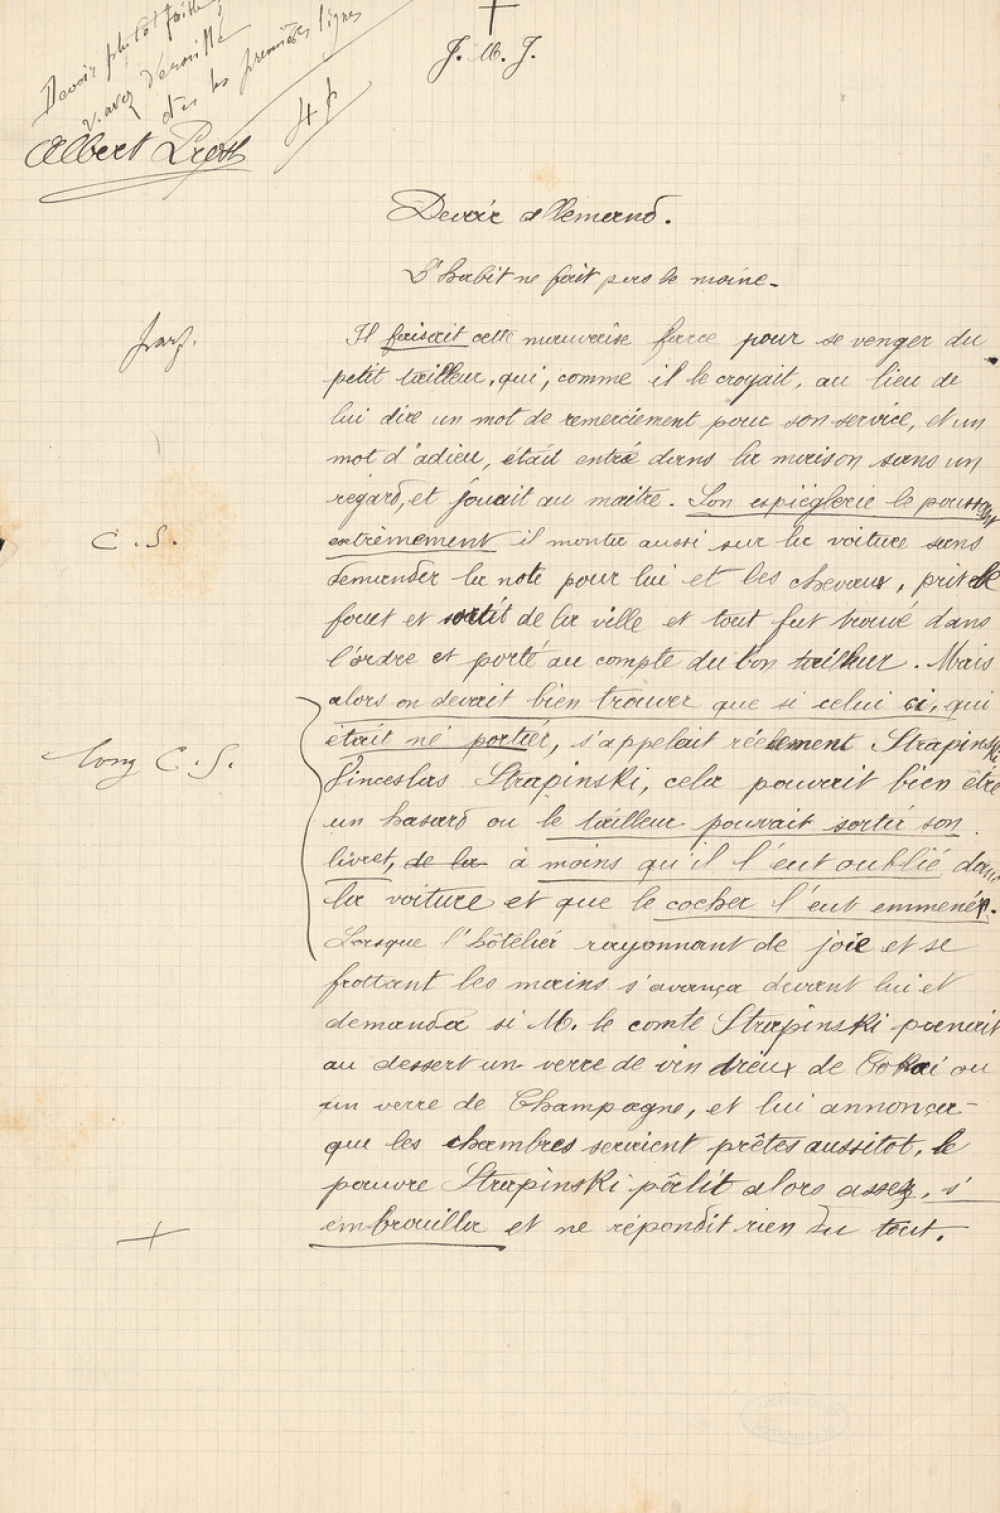 Devoir plutôt faible ;
v. avez dérouillé
dès les premières lignes
J. M. J.
Albert Prost
Devoir allemand.
L'habit ne fait pas le moine.
Il faisait cette mauvaise farce pour se venger du
petit tailleur, qui, comme il le croyait, au lieu de
lui dire un mot de remerciement pour son service, et un
mot d'adieu, était entré dans la maison sans un
regard, et jouait au maître. Son espièglerie le poussant
C. S.
extrèmement il monta aussi sur la voiture sans
demander la note pour lui et les chevaux, prit le
fouet et sortit de la ville et tout fut trouvé dans
l'ordre et porté au compte du bon tailleur. Mais
alors on devait bien trouver que si celui ci, qui
était né portier, s'appelait réellement Strapinski
long C. S.
Vinceslas Strapinski, cela pouvait bien être
un hasard ou le tailleur pouvait sortir son
livret, de la à moins qu'il l'eut oublié dans
la voiture et que le cocher l'eut emmené.
Lorsque l'hôtelier rayonnant de joie et se
frottant les mains s'avança devant lui et
demanda si M. le comte Strapinski prenait
au dessert un verre de vin vieux de Tokai ou
un verre de Champagne, et lui annonça
que les chambres seraient prêtes aussitot, le
pauvre Strapinski pâlit alors assez, s'
embrouilla et ne répondit rien du tout.